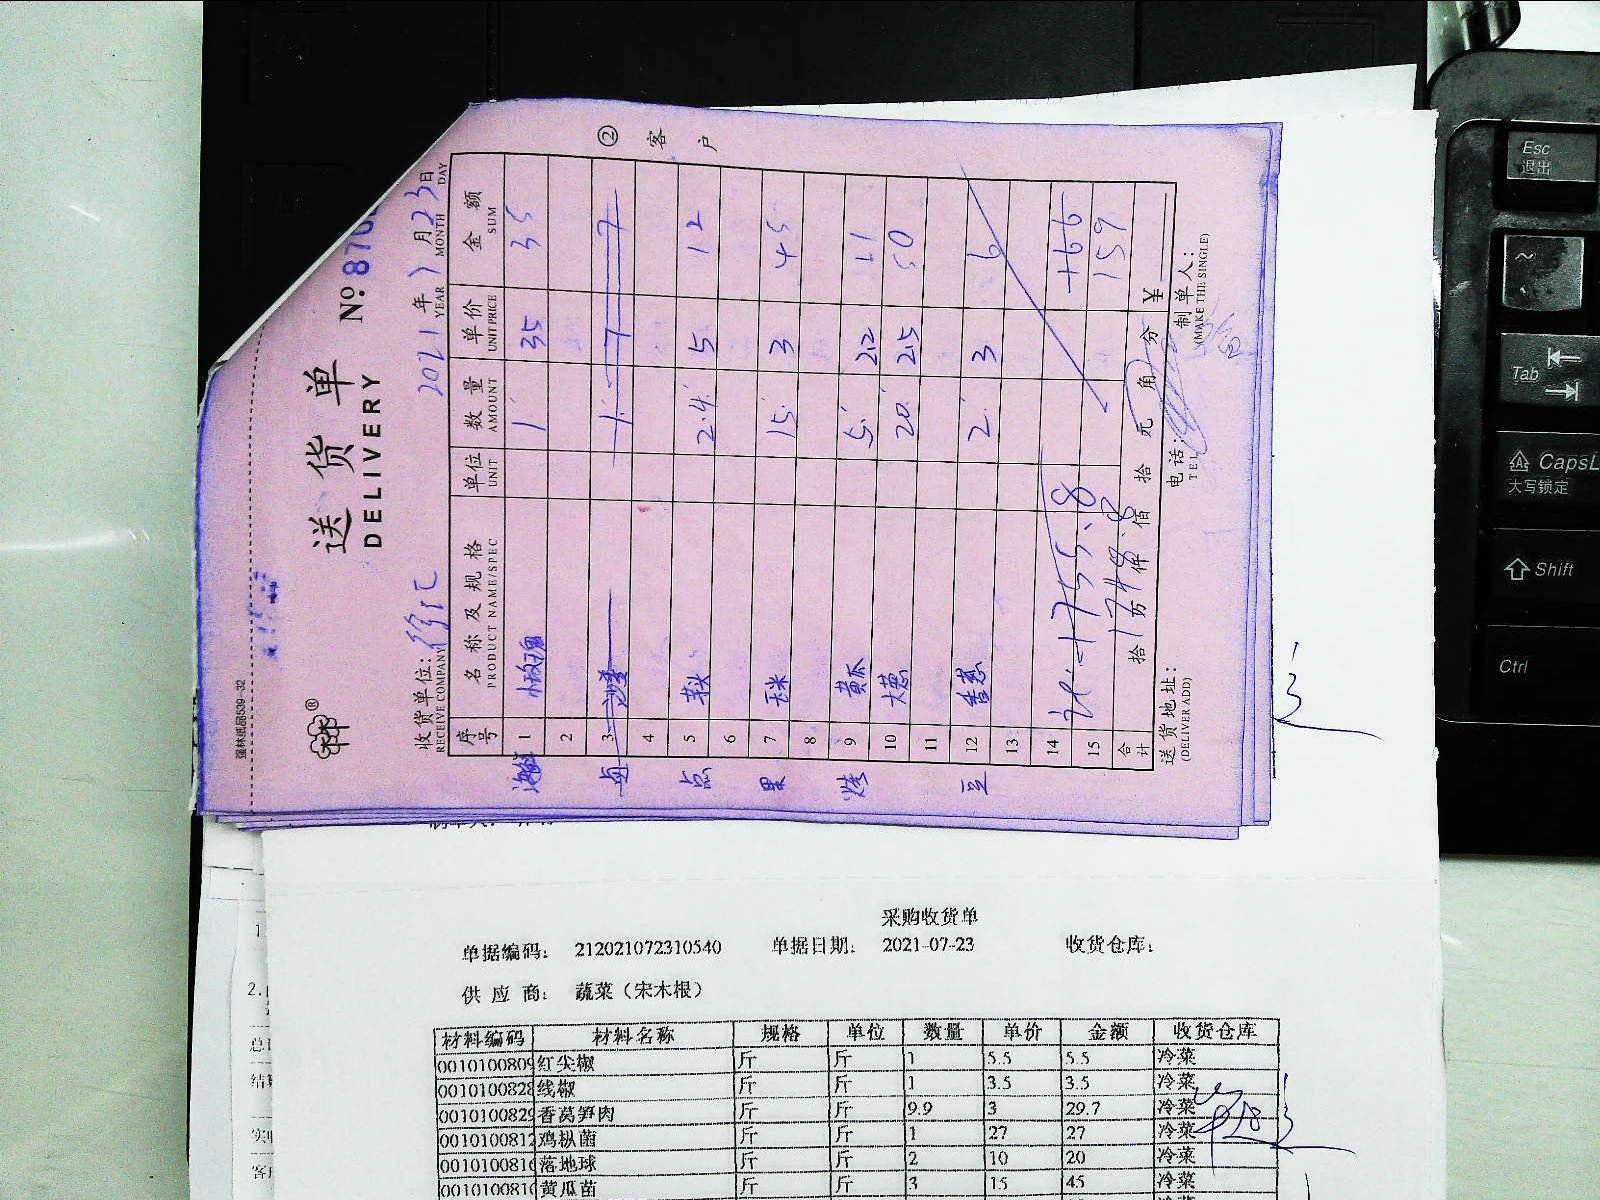 强林纸品539-32
送货单
DELIVERY
№:870
收货单位: 徐汇 2021年7月23日
RECEIVE COMPANY YEAR MONTH DAY
序号 名称及规格 单位 数量 单价 金额
PRODUCT NAME/SPEC UNIT AMOUNT UNIT PRICE SUM
海鲜 1 小玫瑰 1 35 35
2
3 1 7 7
4
点 5 芋头 2.4 5 12
6
果 7 玉米 15 3 45
8
烤 9 黄瓜 5 2.2 11
10 大葱 20 2.5 50
11
豆 12 香葱 2 3 6
13
14 166
15 159
1755.8
1748.8
合计 拾 万 仟 佰 拾 元 角 分 ¥
送货地址: 电话: 制单人:
(DELIVER ADD) TEL (MAKE THE SINGLE)
② 客户
采购收货单
单据编码: 212021072310540 单据日期: 2021-07-23 收货仓库:
供应商: 蔬菜（宋木根）
材料编码 材料名称 规格 单位 数量 单价 金额 收货仓库
0010100809 红尖椒 斤 斤 1 5.5 5.5 冷菜
0010100828 线椒 斤 斤 1 3.5 3.5 冷菜
0010100829 香莴笋肉 斤 斤 9.9 3 29.7 冷菜
0010100812 鸡枞菌 斤 斤 1 27 27 冷菜
0010100816 落地球 斤 斤 2 10 20 冷菜
0010100810 黄瓜苗 斤 斤 3 15 45 冷菜
Esc
退出
~
Tab
CapsL
大写锁定
Shift
Ctrl